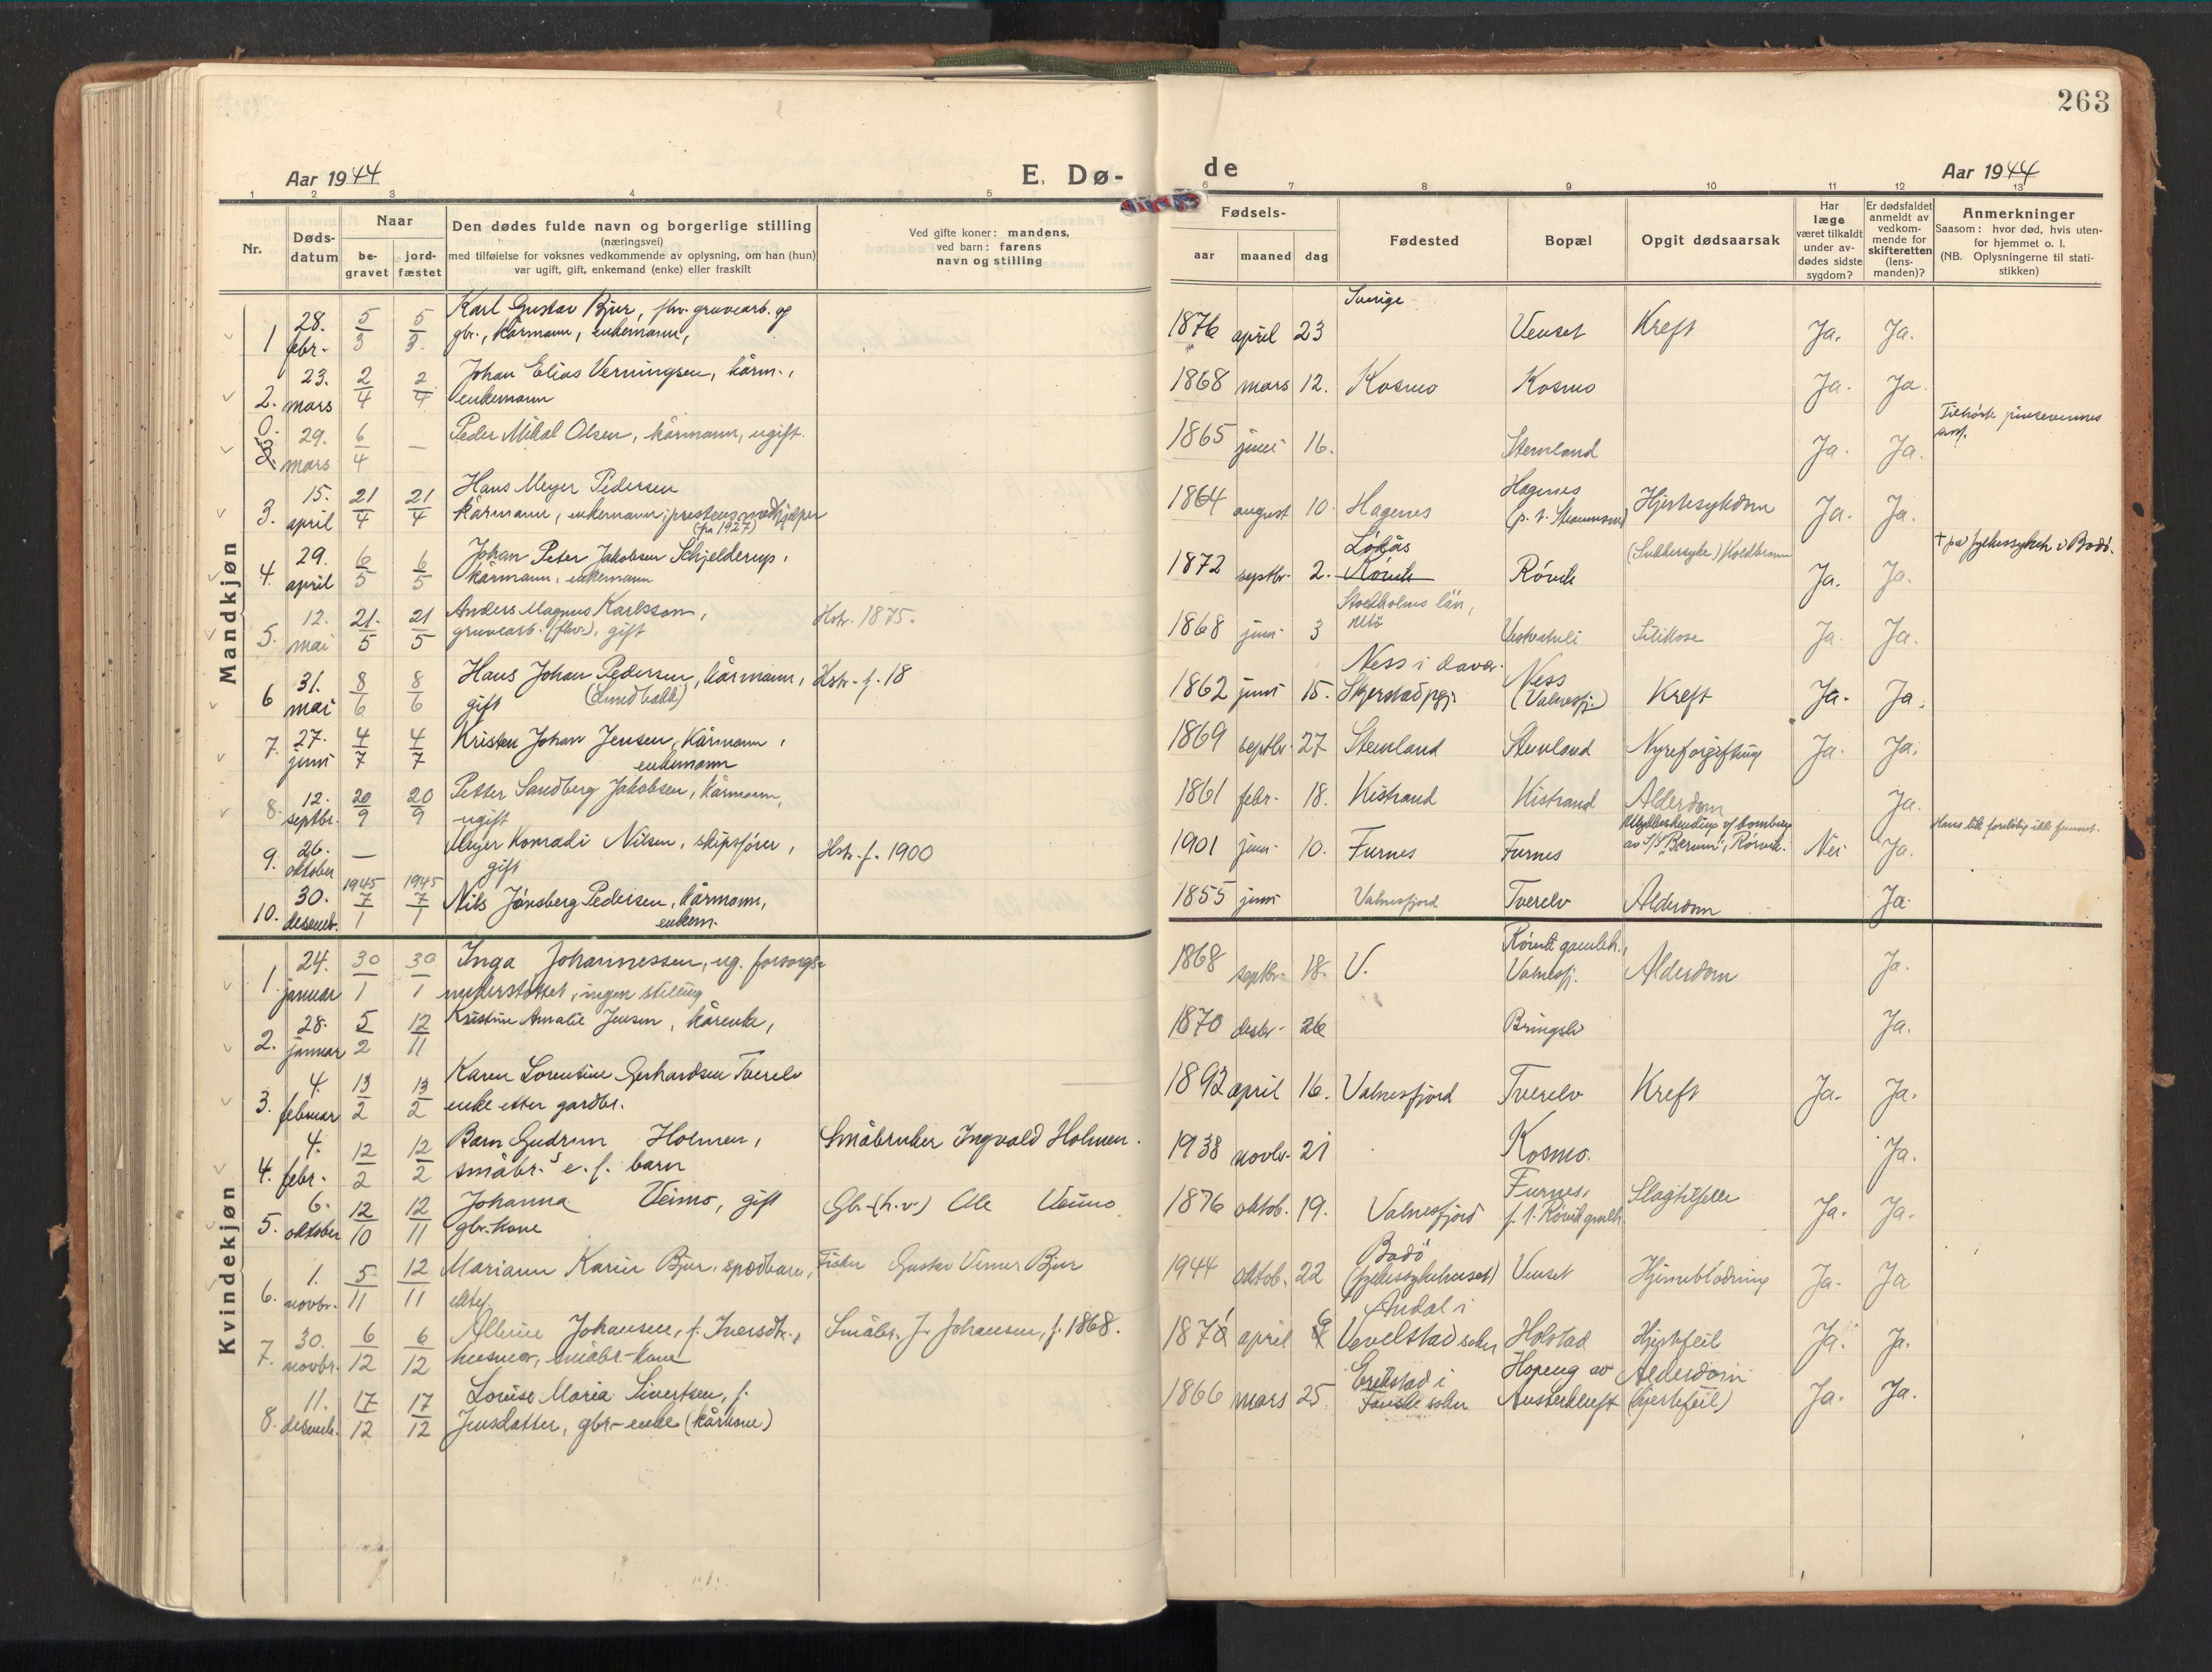 263
Aar 1944
E. Dø-
de
Aar 1944
1 2 3 4 5 6 7 8 9 10 11 12 13
Nr.
Døds-
datum
Naar
be-
gravet
jord-
fæstet
Den dødes fulde navn og borgerlige stilling
(næringsvei)
med tilføielse for voksnes vedkommende av oplysning, om han (hun)
var ugift, gift, enkemand (enke) eller fraskilt
Ved gifte koner: mandens,
ved barn: farens
navn og stilling
Fødsels-
aar maaned dag
Fødested
Bopæl
Opgit dødsaarsak
Har
læge
været tilkaldt
under av-
dødes sidste
sygdom?
Er dødsfaldet
anmeldt av
vedkom-
mende for
skifteretten
(lens-
manden)?
Anmerkninger
Saasom: hvor død, hvis uten-
for hjemmet o. l.
(NB. Oplysningerne til stati-
stikken)
Mandkjøn
1 28. febr. 5/3 5/3 Karl Gustav Bjur, fhv. gruvearb. og
gbr., kårmann, enkemann, 1876 april 23 Sverige Venset Kreft Ja. Ja.
2. 23. mars 2/4 2/4 Johan Elias Verningsen, kårm.,
enkemann 1868 mars 12. Kosmo Kosmo Ja. Ja.
0. 29. mars 6/4 — Peder Mikal Olsen, kårmann, ugift. 1865 juni 16. Stemland Ja. Ja. Tilhørte pinsevennes
3. 15. april 21/4 21/4 Hans Meyer Pedersen
kårmann, enkemann, prestens medhjelper
(fra 1927) 1864 august 10. Hagenes Hagenes
(p. t. Straumsnes) Hjertesykdom Ja. Ja.
4. 29. april 6/5 6/5 Johan Peter Jakobsen Schjelderup,
kårmann, enkemann 1872 septbr. 2. Løkås
Røvik Røvik (Sukkersyke) Koldbrann Ja. Ja. † på fylkessykeh. i Bodø.
5. 12. mai 21/5 21/5 Anders Magnus Karlsson,
gruvearb. (fhv.), gift Hstr. 1875. 1868 juni 3 Stockholms län,
Utö Silikose Ja. Ja.
6 31. mai 8/6 8/6 Hans Johan Pedersen, kårmann,
gift (Sundbakk) Hstr. f. 18 1862 juni 15. Ness i davær.
Skjerstad pgj. Ness
(Valnesfj.) Kreft Ja. Ja.
7. 27. juni 4/7 4/7 Kristen Johan Jensen, kårmann,
enkemann 1869 septbr. 27 Stemland Stemland Nyreforgiftning Ja. Ja.
8. 12. septbr. 20/9 20/9 Petter Sandberg Jakobsen, kårmann,
ugift 1861 febr. 18. Kistrand Kistrand Alderdom Ja.
9. 26. oktober — Meyer Konradi Nilsen, skipsfører,
gift Hstr. f. 1900 1901 juni 10. Furnes Furnes Ulykkeshending v/ bombing
av S/S "Bærum", Rørvik. Nei Ja. Hans lik foreløbig ikke funnet.
10. 30. desemb. 1945 7/1 1945 7/1 Nils Jønsberg Pedersen, kårmann,
enkem. 1855 juni Valnesfjord Tverelv Alderdom Ja.
Kvindekjøn
1. 24. januar 30/1 30/1 Inga Johannessen, ug. forsorgs-
understøttet, ingen stilling 1868 septbr. 18. V. Røvik gamleh.,
Valnesfj. Alderdom Ja.
2. 28. januar 5/2 12/11 Kristine Amalie Jensen, kårenke, 1870 desbr. 26 Bringsli Ja.
3. 4. februar 13/2 13/2 Karen Lorentine Gerhardsen Tverelv
enke etter gardbr. 1892 april 16. Valnesfjord Tverelv Kreft Ja. Ja.
4. 4. febr. 12/2 12/2 Barn Gudrun Holmen,
småbr.s e. f. barn Småbruker Ingvald Holmen. 1938 novbr. 21 Kosmo. Ja.
5. 6. oktober 12/10 12/11 Johanna Veimo, gift
gbr.kone Gbr. (h.v.) Ole Veimo 1876 oktob. 19. Valnesfjord Furnes,
f. t. Røvik gamleh. Slagtilfelle Ja. Ja.
6. 1. novbr. 5/11 12/11 Mariann Karin Bjur, spedbarn,
ektef. Fisker Gustav Verner Bjur 1944 oktob. 22 Bodø
(fylkessykehuset) Venset Hjerneblødning Ja. Ja
7. 30. novbr. 6/12 6/12 Albine Johansen, f. Iversdtr.,
husmor, småbr.-kone Småbr. J. Johansen, f. 1868. 1871 april 9 Andal i
Vevelstad sokn Holstad Hjertefeil Ja. Ja.
8. 11. desemb. 17/12 17/12 Lovise Maria Sivertsen, f.
Jensdatter, gbr.-enke (kårkone) 1866 mars 25. Erikstad i
Fauske sokn Hopeng av
Austerkluft Alderdom
(hjertefeil) Ja. Ja.